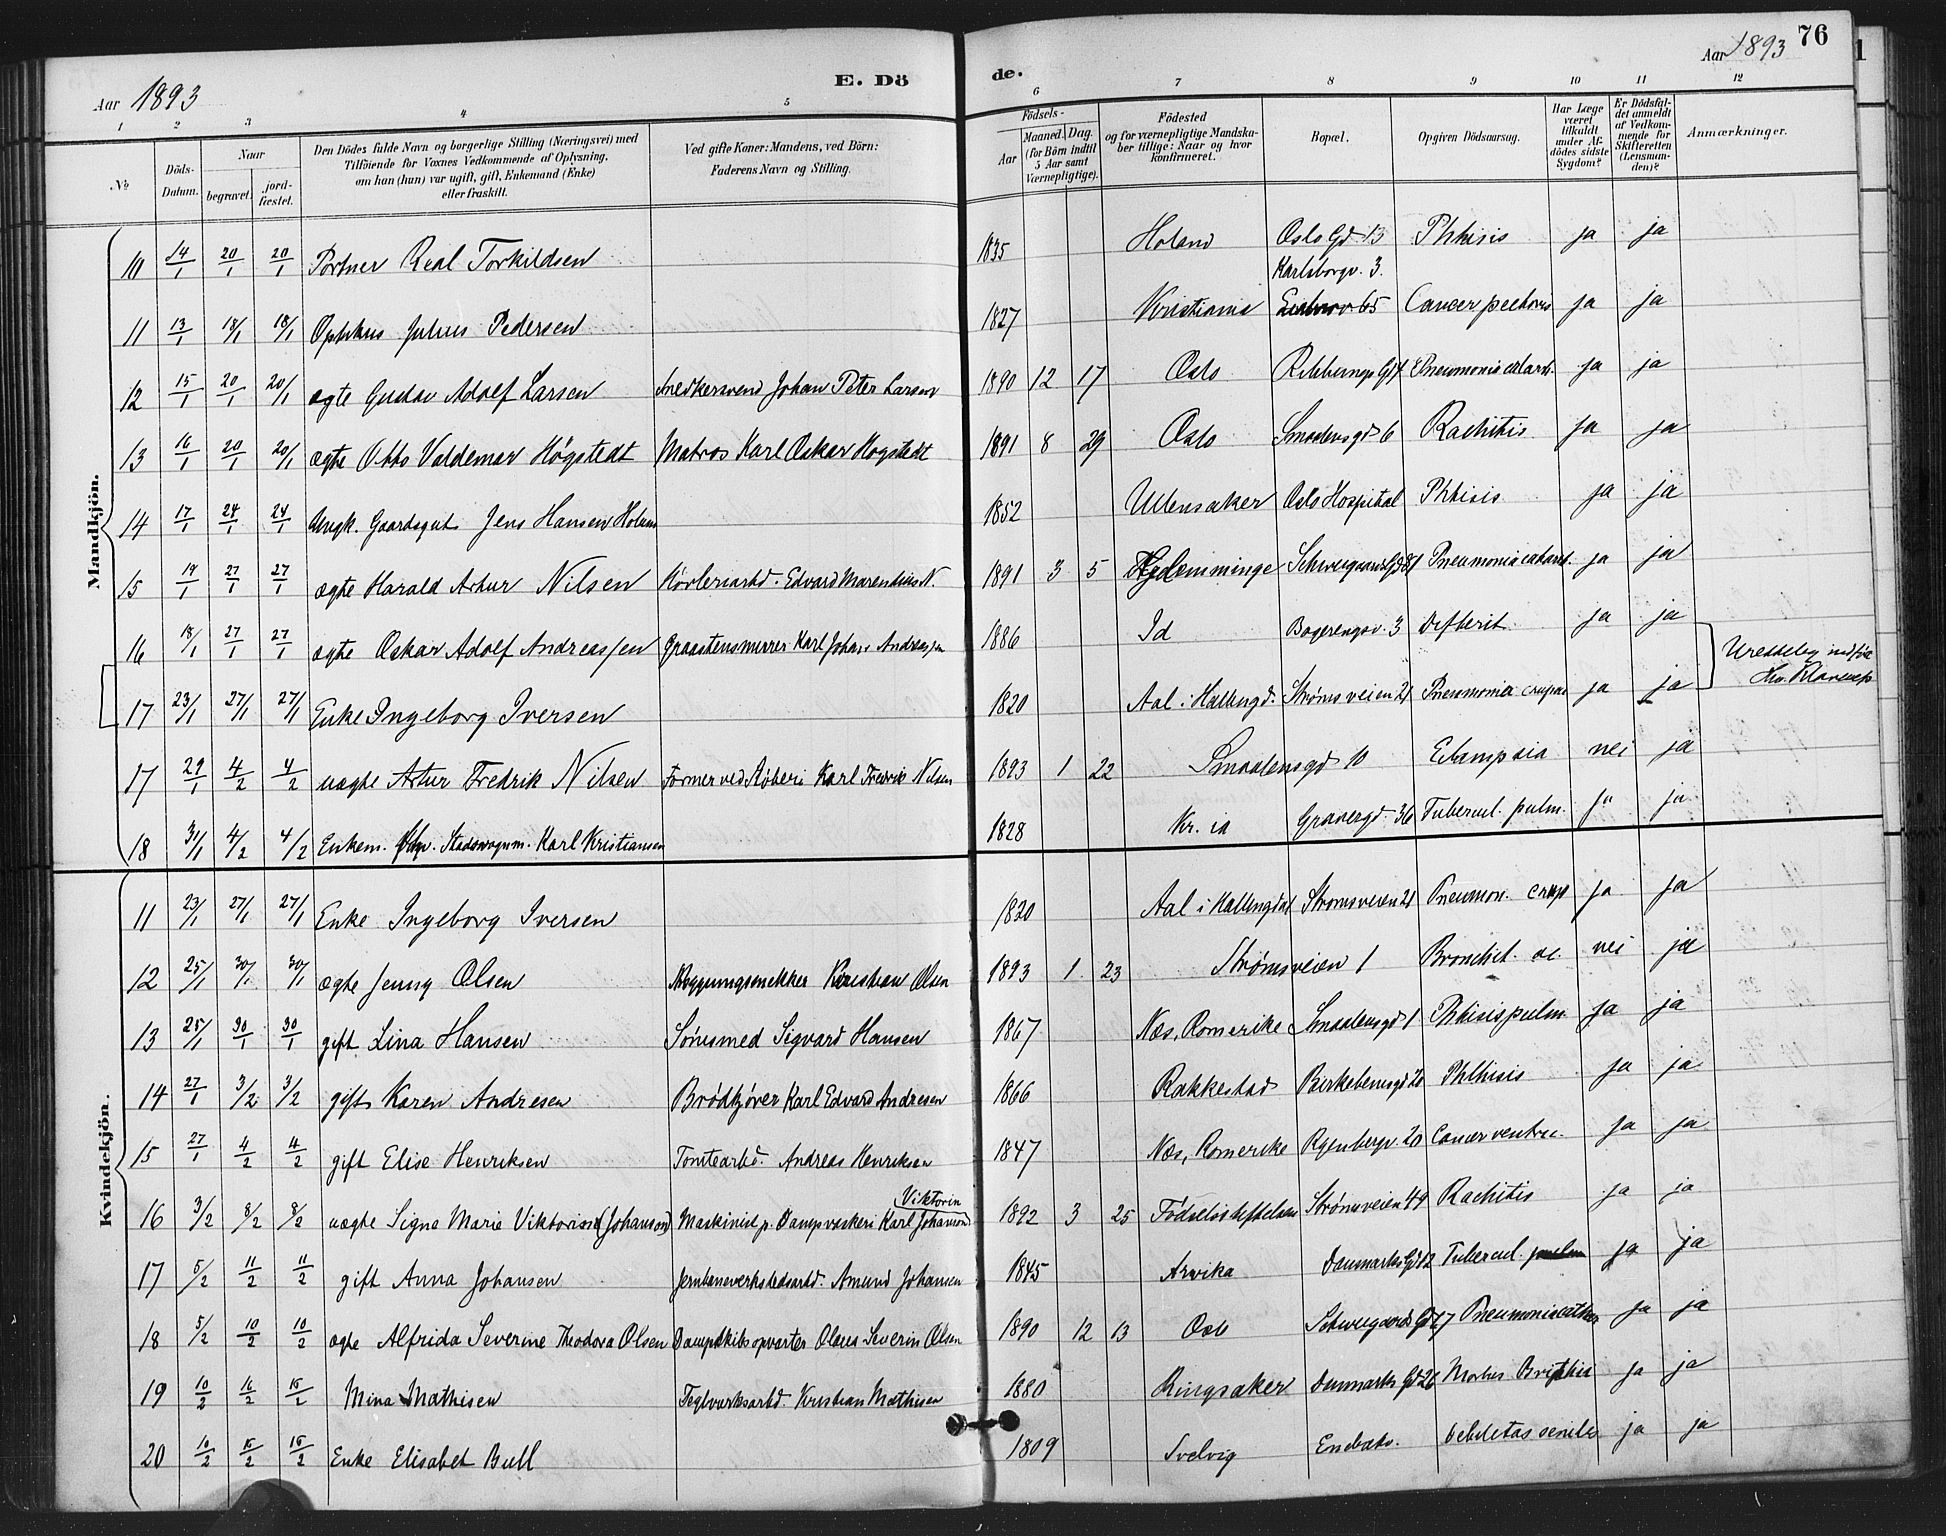 76
Aar 1893
E. Dö
de.
Aar 1893
1 2 3 4 5 6 7 8 9 10 11 12
No
Döds-Datum.
Naar
begravet.
jord-fæstet.
Den Dödes fulde Navn og borgerlige Stilling (Næringsvei) med
Tilföiende for Voxnes Vedkommende af Oplysning,
om han (hun) var ugift, gift, Enkemand (Enke)
eller fraskilt.
Ved gifte Koner: Mandens, ved Börn:
Faderens Navn og Stilling.
Födsels-
Aar
Maaned. Dag.
(for Börn indtil
5 Aar samt
Værnepligtige).
Födested
og for værnepligtige Mandska-
ber tillige: Naar og hvor
konfirmeret.
Bopæl.
Opgiven Dödsaarsag.
Har Læge
været
tilkaldt
under Af-
dödes sidste
Sygdom?
Er Dödsfal-
det anmeldt
af Vedkom-
mende for
Skifteretten
(Lensman-
den)?
Anmærkninger.
Mandkjön.
10 14/1 20/1 20/1 Portner Real Torkildsen 1835 Holand Oslo Gd 13 Phtisis ja ja
Karlsborgv. 3.
11 13/1 18/1 18/1 Julius Pedersen 1827 Kristiania 65 Cancer pectoris ja ja
12 15/1 20/1 20/1 ægte Gustav Adolf Larsen Snedkersvend Johan Peter Larsen 1890 12 17 Oslo Pneumonia catarrh. ja ja
13 16/1 20/1 20/1 ægte Otto Valdemar Høgstedt Matros Karl Oskar Høgstedt 1891 8 29 Oslo Smaalensgd 6 Rachitis ja ja
14 17/1 24/1 24/1 Ungk. Gaardsgut Jens Hansen Holum 1852 Ullensaker Oslo Hospital Phtisis ja ja
15 19/1 27/1 27/1 ægte Harald Artur Nilsen Høvleriarbd. Edvard Marendius N. 1891 3 5 Glemminge Pneumonia catarrh. ja ja
16 18/1 27/1 27/1 ægte Oskar Adolf Andreassen Graastensmurer Karl Johan Andreassen 1886 Id Bogerengv. 3 Difterit ja ja
17 23/1 27/1 27/1 Enke Ingeborg Iversen 1820 Aal i Hallingd. Strømsveien 21 Pneumonia crupos ja ja
17 29/1 4/2 4/2 uægte Artur Fredrik Nilsen Former ved Støberi Karl Fredrik Nilsen 1893 1 22 Smaalensgd 10 Eclampsia nei ja
18 31/1 4/2 4/2 Enkem. Karl Kristiansen 1828 Kr.ia Gravergd 36 Tubercul. pulm. ja ja
Kvindekjön.
11 23/1 27/1 27/1 Enke Ingeborg Iversen 1820 Aal i Hallingdal Strømsveien 21 Pneumon. crup ja ja
12 25/1 30/1 30/1 ægte Jenny Olsen Bygningssnekker Kristian Olsen 1893 1 23 Strømsveien 1 Bronchit. ac. nei ja
13 25/1 30/1 30/1 gift Lina Hansen Sømsmed Sigvard Hansen 1867 Næs, Romerike Smaalensgd 1 Phtisis pulm ja ja
14 27/1 3/2 3/2 gift Karen Andresen Brødkjører Karl Edvard Andresen 1866 Rakkestad Birkebenergd 20 Phthisis ja ja
15 27/1 4/2 4/2 gift Elise Henriksen Tomtearbd. Andreas Henriksen 1847 Næs, Romerike Ryenbergv. 20 Cancer ventric. ja ja
16 3/2 8/2 8/2 uægte Signe Marie Viktorine (Johanson) Maskinist p. Dampvaskeri Karl Viktorin Johanson 1892 3 25 Fødselsstiftelsen Strømsveien 49 Rachitis ja ja
17 5/2 11/2 11/2 gift Anna Johansen Jernbaneverkstedsarbd. Amund Johansen 1845 Arvika Danmarks Gd 12 Tubercul. pulm ja ja
18 5/2 10/2 10/2 ægte Alfrida Severine Theodora Olsen Dampskibsopvarter Olaus Severin Olsen 1890 12 13 Oslo Pneumonia catharr ja ja
19 10/2 16/2 15/2 Mina Mathisen Teglverksarbd. Kristian Mathisen 1880 Ringsaker Danmarks Gd 26 Morbus Brightii ja ja
20 10/2 15/2 15/2 Enke Elisabet Bull 1809 Svelvig Debilitas senilis ja ja